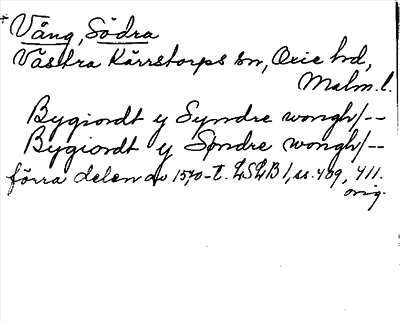 + Vång, Södra
Västra Kärrstorps sn, Oxie hd,
Malm. l.
Bygiordt y Syndre wongh/--
Bygiordt y Søndre wongh/--
förra delen av 1570-t. LSLB 1, ss. 409, 411.
orig.